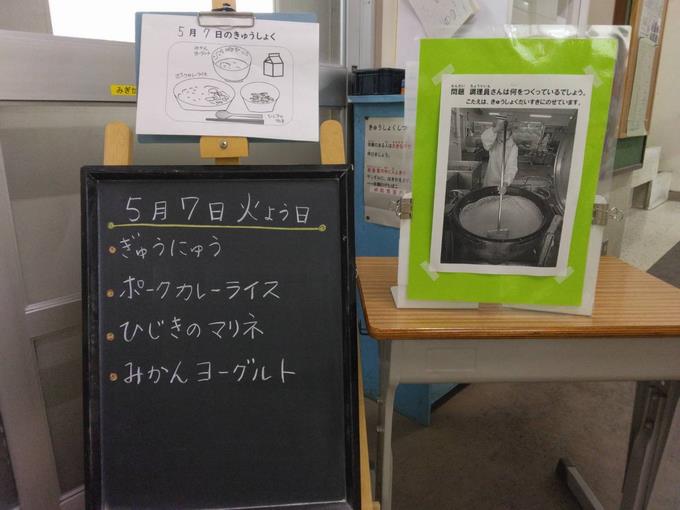 5月7日のきゅうしょく
みかんヨーグルト
ポークカレーライス
ひじきのマリネ
みぎ
5月7日 火よう日
・ぎゅうにゅう
・ポークカレーライス
・ひじきのマリネ
・みかんヨーグルト
きゅうしょくしつ
もんだい ちょうりいん
問題 調理員さんは何をつくっているでしょう。
こたえは、きゅうしょくだいすきにのせています。